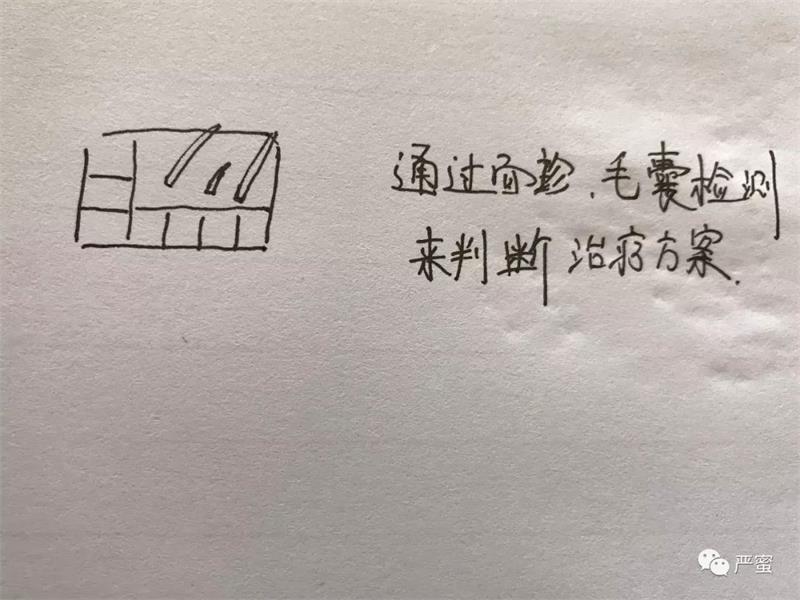 通过面诊、毛囊检测
来判断治疗方案.
严蜜